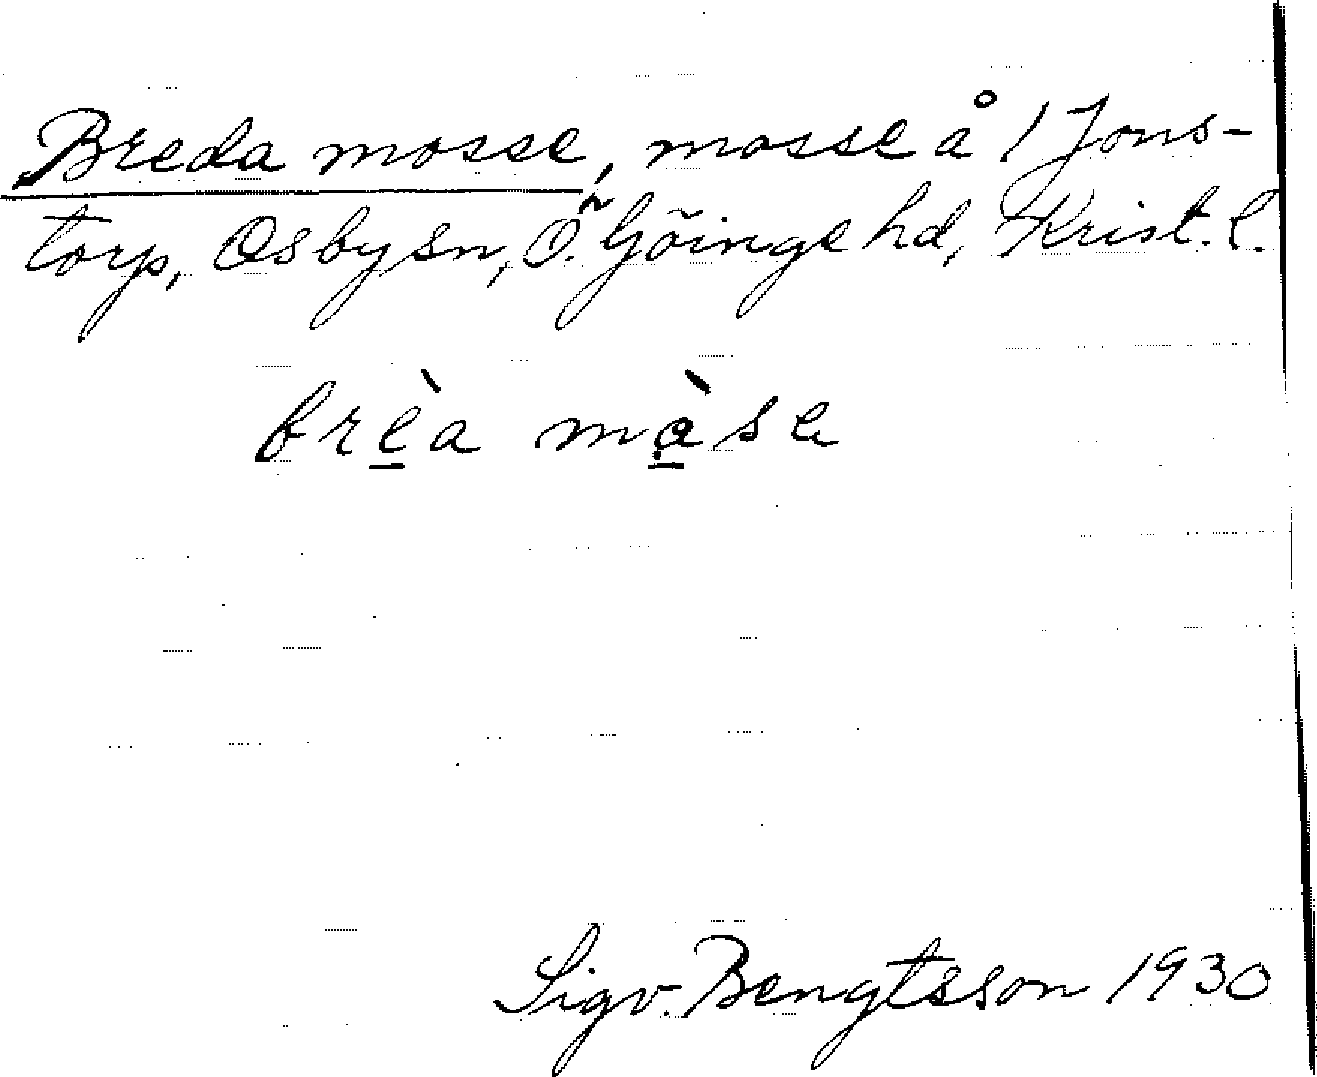 Breda mosse, mosse å 1 Jons-
torp, Osby sn, Ö. Göinge hd, Krist. l.
brèa màse
Sigv. Bengtsson 1930